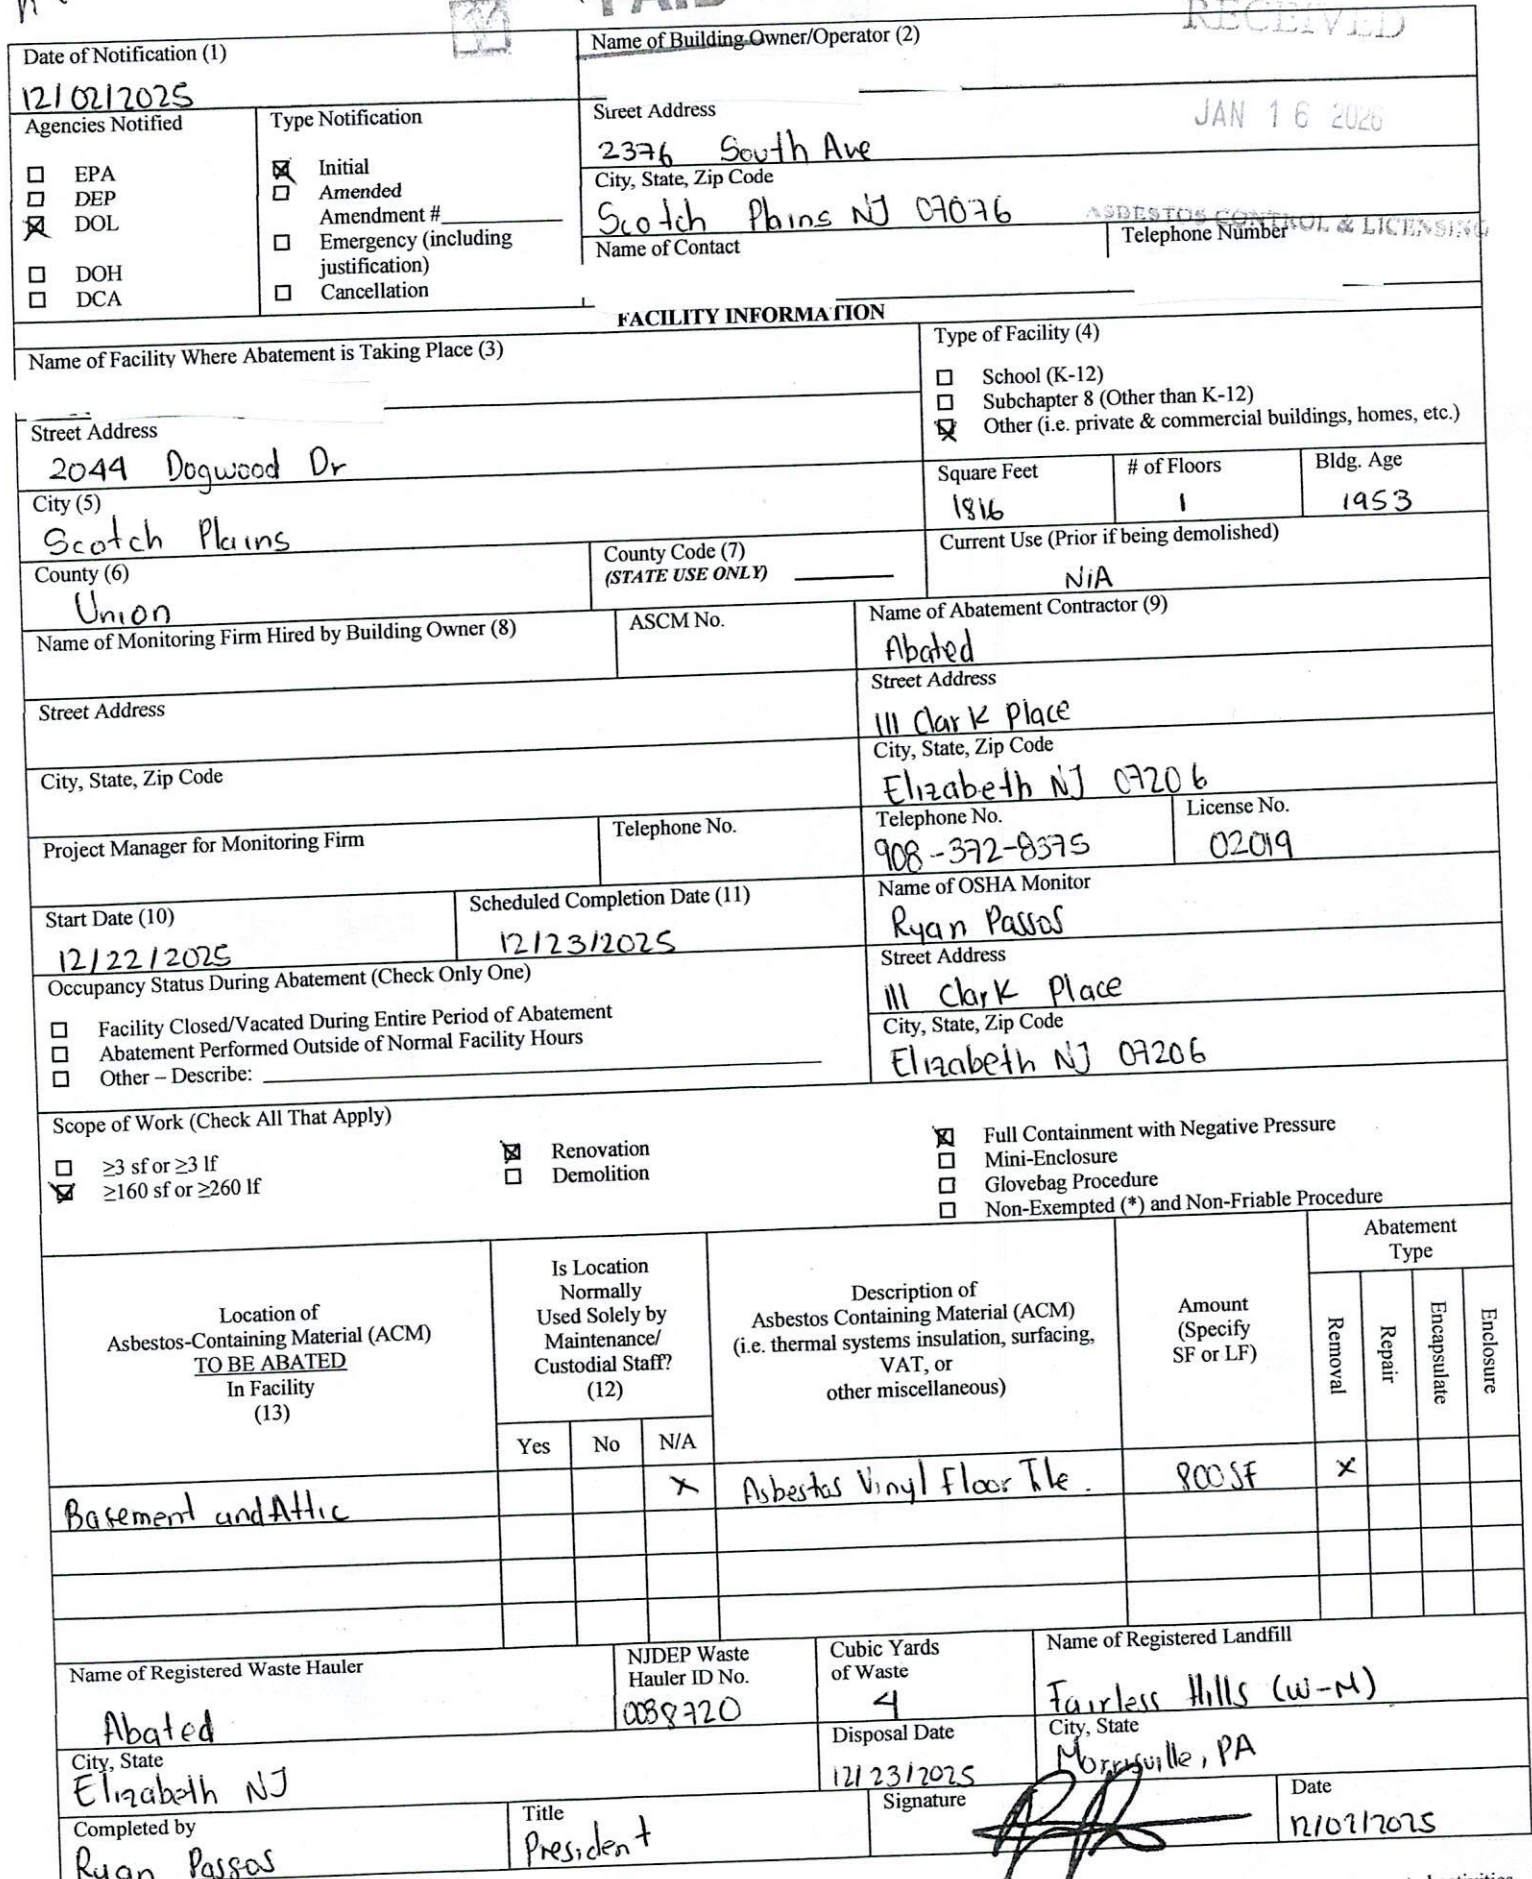 PAID
RECEIVED
Date of Notification (1)
12/02/2025
Name of Building Owner/Operator (2)
Agencies Notified
☐ EPA
☐ DEP
☒ DOL
☐ DOH
☐ DCA
Type Notification
☒ Initial
☐ Amended
Amendment #
☐ Emergency (including
justification)
☐ Cancellation
Street Address
2376 South Ave
JAN 16 2026
City, State, Zip Code
Scotch Plains NJ 07076
ASBESTOS CONTROL & LICENSING
Name of Contact
Telephone Number
FACILITY INFORMATION
Name of Facility Where Abatement is Taking Place (3)
Type of Facility (4)
☐ School (K-12)
☐ Subchapter 8 (Other than K-12)
☒ Other (i.e. private & commercial buildings, homes, etc.)
Street Address
2044 Dogwood Dr
Square Feet
1816
# of Floors
1
Bldg. Age
1953
City (5)
Scotch Plains
County (6)
Union
County Code (7)
(STATE USE ONLY)
Current Use (Prior if being demolished)
N/A
Name of Monitoring Firm Hired by Building Owner (8)
ASCM No.
Name of Abatement Contractor (9)
Abated
Street Address
Street Address
111 Clark Place
City, State, Zip Code
City, State, Zip Code
Elizabeth NJ 07206
Project Manager for Monitoring Firm
Telephone No.
Telephone No.
908-372-8375
License No.
02019
Start Date (10)
12/22/2025
Scheduled Completion Date (11)
12/23/2025
Name of OSHA Monitor
Ryan Passos
Occupancy Status During Abatement (Check Only One)
☐ Facility Closed/Vacated During Entire Period of Abatement
☐ Abatement Performed Outside of Normal Facility Hours
☐ Other – Describe:
Street Address
111 Clark Place
City, State, Zip Code
Elizabeth NJ 07206
Scope of Work (Check All That Apply)
☐ ≥3 sf or ≥3 lf
☒ ≥160 sf or ≥260 lf
☒ Renovation
☐ Demolition
☒ Full Containment with Negative Pressure
☐ Mini-Enclosure
☐ Glovebag Procedure
☐ Non-Exempted (*) and Non-Friable Procedure
Location of
Asbestos-Containing Material (ACM)
TO BE ABATED
In Facility
(13)
Is Location
Normally
Used Solely by
Maintenance/
Custodial Staff?
(12)
Yes No N/A
Description of
Asbestos Containing Material (ACM)
(i.e. thermal systems insulation, surfacing,
VAT, or
other miscellaneous)
Amount
(Specify
SF or LF)
Abatement
Type
Removal
Repair
Encapsulate
Enclosure
Basement and Attic X Asbestos Vinyl Floor Tile. 800 SF X
Name of Registered Waste Hauler
Abated
NJDEP Waste
Hauler ID No.
0038720
Cubic Yards
of Waste
4
Name of Registered Landfill
Fairless Hills (W-M)
City, State
Elizabeth NJ
Disposal Date
12/23/2025
City, State
Morrisville, PA
Completed by
Ryan Passos
Title
President
Signature
Date
12/02/2025